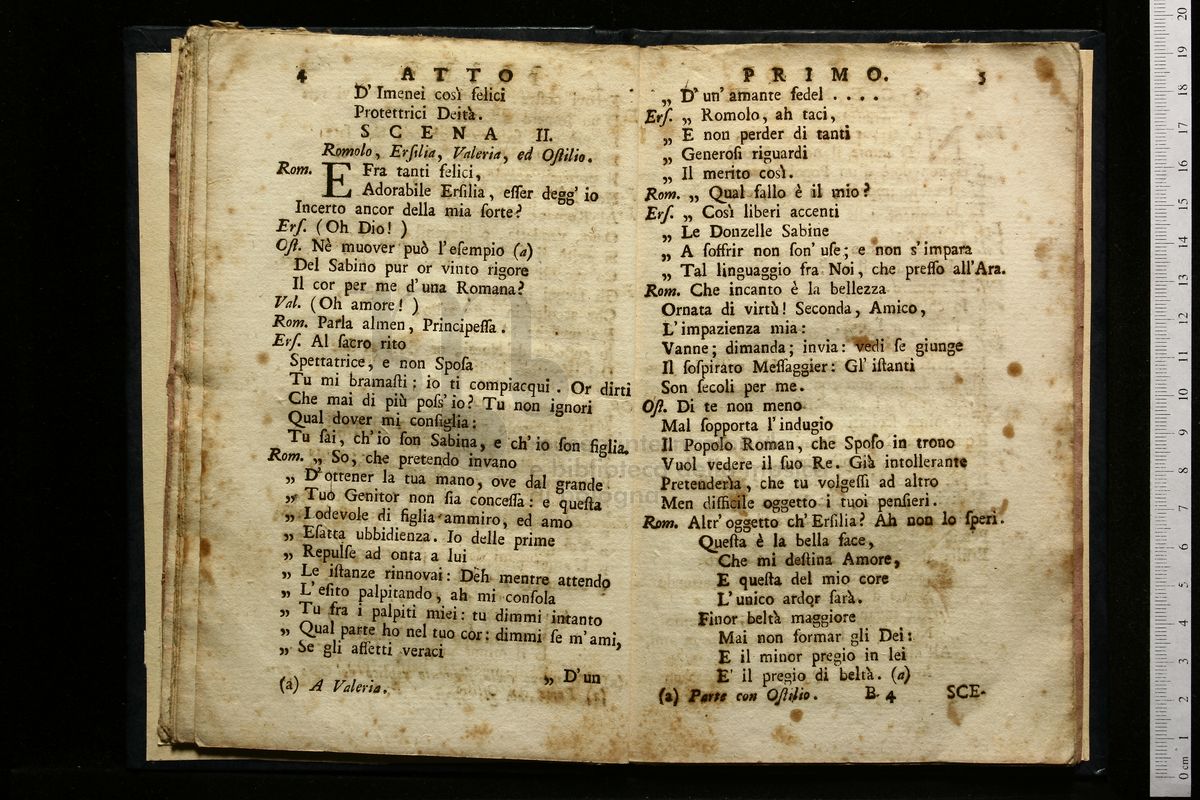 4 ATTO
D' Imenei così felici
Protettrici Deità.
SCENA II.
Romolo, Erſilia, Valeria, ed Oſtilio.
Rom. E Fra tanti felici,
Adorabile Erſilia, eſſer degg' io
Incerto ancor della mia ſorte?
Erſ. (Oh Dio! )
Oſt. Nè muover può l'eſempio (a)
Del Sabino pur or vinto rigore
Il cor per me d'una Romana?
Val. (Oh amore! )
Rom. Parla almen, Principeſſa.
Erſ. Al ſacro rito
Spettatrice, e non Spoſa
Tu mi bramaſti: io ti compiacqui. Or dirti
Che mai di più poſs' io? Tu non ignori
Qual dover mi conſiglia:
Tu ſai, ch'io ſon Sabina, e ch'io ſon figlia.
Rom. „ So, che pretendo invano
„ D'ottener la tua mano, ove dal grande
„ Tuo Genitor non ſia conceſſa: e queſta
„ Lodevole di figlia ammiro, ed amo
„ Eſatta ubbidienza. Io delle prime
„ Repulſe ad onta a lui
„ Le iſtanze rinnovai: Deh mentre attendo
„ L'eſito palpitando, ah mi conſola
„ Tu fra i palpiti miei: tu dimmi intanto
„ Qual parte ho nel tuo cor: dimmi ſe m'ami,
„ Se gli affetti veraci
„ D'un
(a) A Valeria.
PRIMO. 5
„ D' un' amante fedel . . . .
Erſ. „ Romolo, ah taci,
„ E non perder di tanti
„ Generoſi riguardi
„ Il merito così.
Rom. „ Qual fallo è il mio?
Erſ. „ Così liberi accenti
„ Le Donzelle Sabine
„ A ſoffrir non ſon' uſe; e non s'impara
„ Tal linguaggio fra Noi, che preſſo all'Ara.
Rom. Che incanto è la bellezza
Ornata di virtù! Seconda, Amico,
L'impazienza mia:
Vanne; dimanda; invia: vedi ſe giunge
Il ſoſpirato Meſſaggier: Gl' iſtanti
Son ſecoli per me.
Oſt. Di te non meno
Mal ſopporta l'indugio
Il Popolo Roman, che Spoſo in trono
Vuol vedere il ſuo Re. Già intollerante
Pretenderia, che tu volgeſſi ad altro
Men difficile oggetto i tuoi penſieri.
Rom. Altr' oggetto ch' Erſilia? Ah non lo ſperi.
Queſta è la bella face,
Che mi deſtina Amore,
E queſta del mio core
L'unico ardor ſarà.
Finor beltà maggiore
Mai non formar gli Dei:
E il minor pregio in lei
E' il pregio di beltà. (a)
(a) Parte con Oſtilio. B 4 SCE-